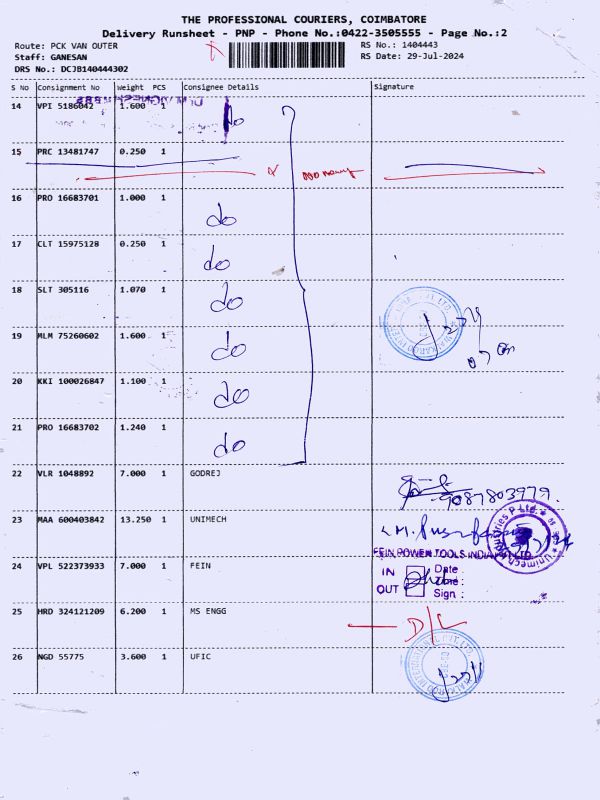 THE PROFESSIONAL COURIERS, COIMBATORE
Delivery Runsheet - PNP - Phone No.:0422-3505555 - Page No.:2
Route: PCK VAN OUTER RS No.: 1404443
Staff: GANESAN RS Date: 29-Jul-2024
DRS No.: DCJB140444302
S No Consignment No Weight PCS Consignee Details Signature
14 VPI 5186042 1.600 1 do
15 PRC 13481747 0.250 1
16 PRO 16683701 1.000 1 do
17 CLT 15975128 0.250 1 do
18 SLT 305116 1.070 1 do
19 MLM 75260602 1.600 1 do
20 KKI 100026847 1.100 1 do
21 PRO 16683702 1.240 1 do
22 VLR 1048892 7.000 1 GODREJ 9087803979
23 MAA 600403842 13.250 1 UNIMECH
FEIN POWER TOOLS INDIA PVT LTD
24 VPL 522373933 7.000 1 FEIN IN Date :
Time :
OUT Sign :
25 HRD 324121209 6.200 1 MS ENGG D/L
26 NGD 55775 3.600 1 UFIC